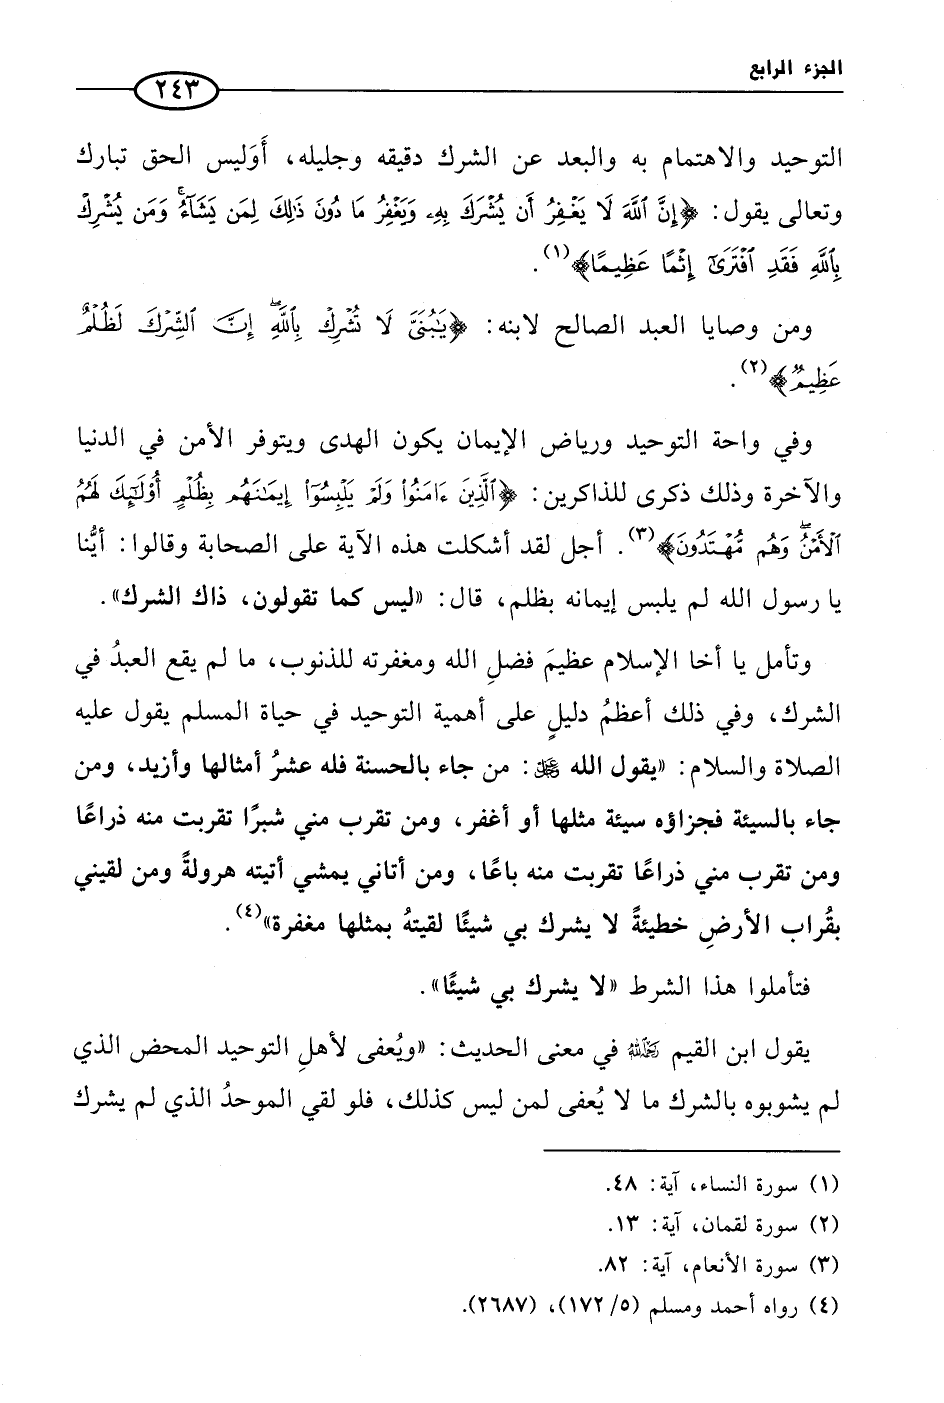 الجزء الرابع
٢٤٣
التوحيد والاهتمام به والبعد عن الشرك دقيقه وجليله، أَوَليس الحق تبارك
وتعالى يقول: ﴿إِنَّ ٱللَّهَ لَا يَغْفِرُ أَن يُشْرَكَ بِهِۦ وَيَغْفِرُ مَا دُونَ ذَٰلِكَ لِمَن يَشَآءُۚ وَمَن يُشْرِكْ
بِٱللَّهِ فَقَدِ ٱفْتَرَىٰٓ إِثْمًا عَظِيمًا﴾(١).
ومن وصايا العبد الصالح لابنه: ﴿يَٰبُنَىَّ لَا تُشْرِكْ بِٱللَّهِۖ إِنَّ ٱلشِّرْكَ لَظُلْمٌ
عَظِيمٌ﴾(٢).
وفي واحة التوحيد ورياض الإيمان يكون الهدى ويتوفر الأمن في الدنيا
والآخرة وذلك ذكرى للذاكرين: ﴿ٱلَّذِينَ ءَامَنُوا۟ وَلَمْ يَلْبِسُوٓا۟ إِيمَٰنَهُم بِظُلْمٍ أُو۟لَٰٓئِكَ لَهُمُ
ٱلْأَمْنُۖ وَهُم مُّهْتَدُونَ﴾(٣). أجل لقد أشكلت هذه الآية على الصحابة وقالوا: أيُّنا
يا رسول الله لم يلبس إيمانه بظلم، قال: «ليس كما تقولون، ذاك الشرك».
وتأمل يا أخا الإسلام عظيمَ فضلِ الله ومغفرته للذنوب، ما لم يقع العبدُ في
الشرك، وفي ذلك أعظمُ دليلٍ على أهمية التوحيد في حياة المسلم يقول عليه
الصلاة والسلام: «يقول الله ﷺ: من جاء بالحسنة فله عشرُ أمثالها وأزيد، ومن
جاء بالسيئة فجزاؤه سيئة مثلها أو أغفر، ومن تقرب مني شبرًا تقربت منه ذراعًا
ومن تقرب مني ذراعًا تقربت منه باعًا، ومن أتاني يمشي أتيته هرولةً ومن لقيني
بقُراب الأرضِ خطيئةً لا يشرك بي شيئًا لقيتهُ بمثلها مغفرة»(٤).
فتأملوا هذا الشرط «لا يشرك بي شيئًا».
يقول ابن القيم رحمه الله في معنى الحديث: «ويُعفى لأهلِ التوحيد المحض الذي
لم يشوبوه بالشرك ما لا يُعفى لمن ليس كذلك، فلو لقي الموحدُ الذي لم يشرك
(١) سورة النساء، آية: ٤٨.
(٢) سورة لقمان، آية: ١٣.
(٣) سورة الأنعام، آية: ٨٢.
(٤) رواه أحمد ومسلم (٥/ ١٧٢)، (٢٦٨٧).